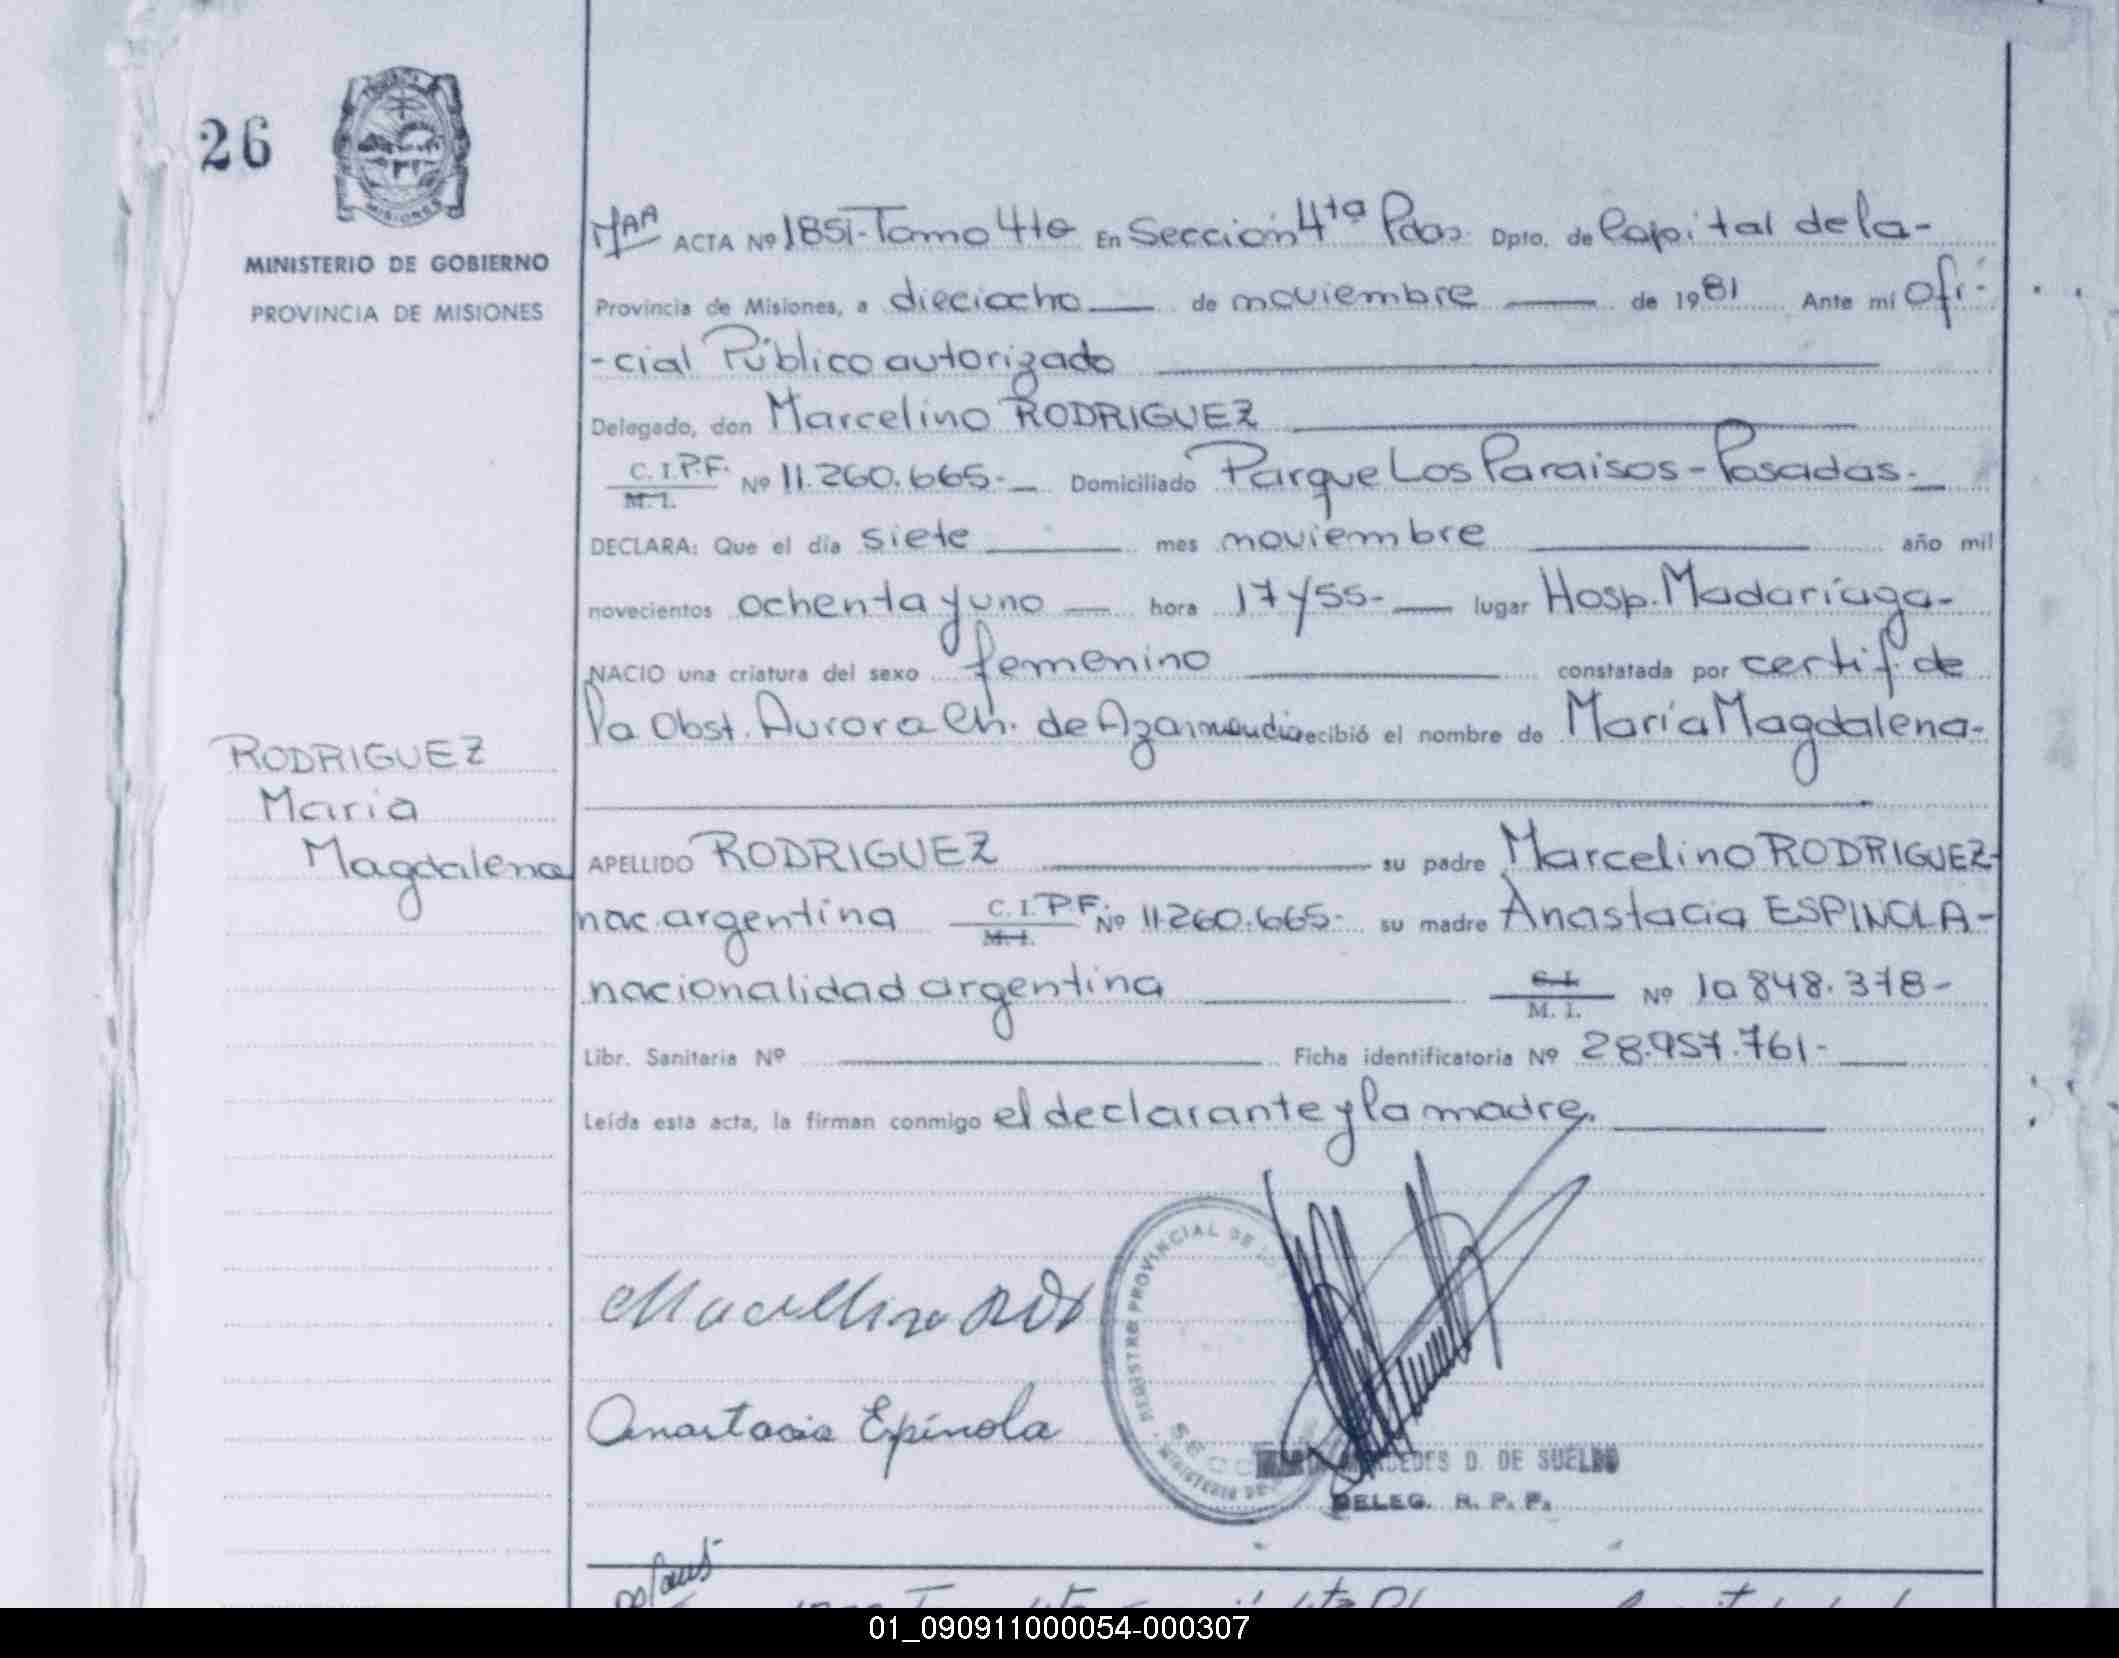 26
MISIONES
MINISTERIO DE GOBIERNO
PROVINCIA DE MISIONES
ACTA Nº 1851-Tomo 4to En Sección 4ta Pdas. Dpto. de Capital de la-
Provincia de Misiones, a dieciocho de noviembre de 1981 Ante mí Ofi-
-cial Público autorizado
Delegado, don Marcelino RODRIGUEZ
C. I. P.F. M. I. Nº 11.260.665.- Domiciliado Parque Los Paraisos - Posadas.-
DECLARA: Que el día siete mes noviembre año mil
novecientos ochenta y uno hora 17 y 55- lugar Hosp. Madariaga-
NACIO una criatura del sexo femenino constatada por certif. de
la Obst. Aurora Ch. de recibió el nombre de María Magdalena-
RODRIGUEZ
Maria
Magdalena
APELLIDO RODRIGUEZ su padre Marcelino RODRIGUEZ-
nac. argentina C. I. P.F. M. I. Nº 11.260.665- su madre Anastacia ESPINOLA-
nacionalidad argentina C. I. M. I. Nº 10.848.378-
Libr. Sanitaria Nº Ficha identificatoria Nº 28.957.761-
Leída esta acta, la firman conmigo el declarante y la madre.
REGISTRO PROVINCIAL DE
MINISTERIO DE
Anastacia Espínola
D. DE SUELDO
DELEG. R. P. P.
01_090911000054-000307